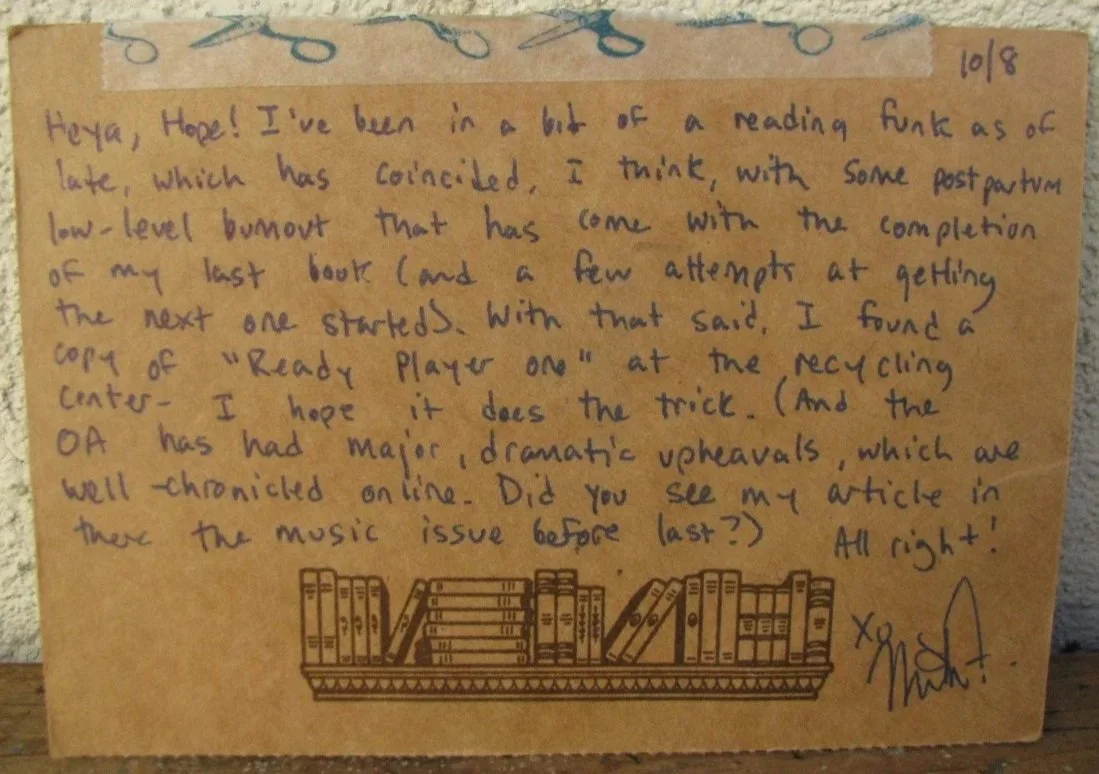 10/8
Heya, Hope! I've been in a bit of a reading funk as of
late, which has coincided, I think, with some postpartum
low-level burnout that has come with the completion
of my last book (and a few attempts at getting
the next one started). With that said, I found a
copy of "Ready Player One" at the recycling
center- I hope it does the trick. (And the
OA has had major, dramatic upheavals, which are
well-chronicled online. Did you see my article in
there the music issue before last?)
All right!
xo